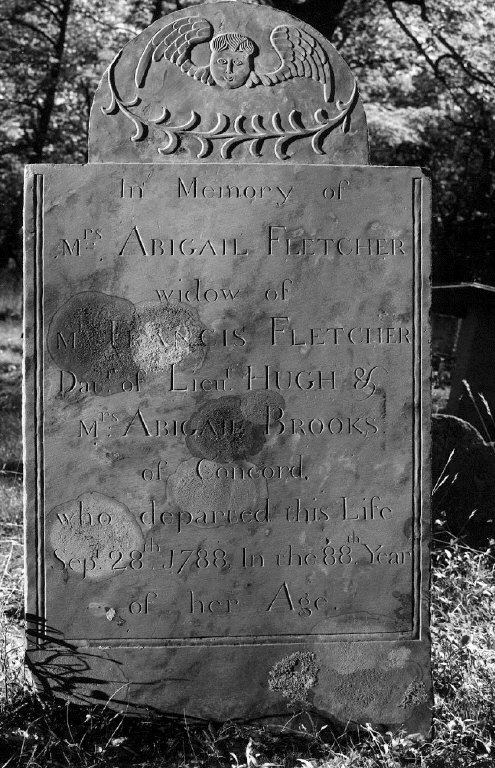 In Memory of
Mrs. ABIGAIL FLETCHER
widow of
Mr FRANCIS FLETCHER
Daut. of Lieut. HUGH &
Mrs. ABIGAIL BROOKS
of Concord,
who departed this Life
Sept. 28th. 1788. In the 88th. Year
of her Age.